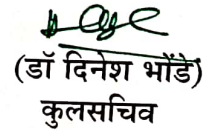 (डॉ दिनेश भोंडे)
कुलसचिव